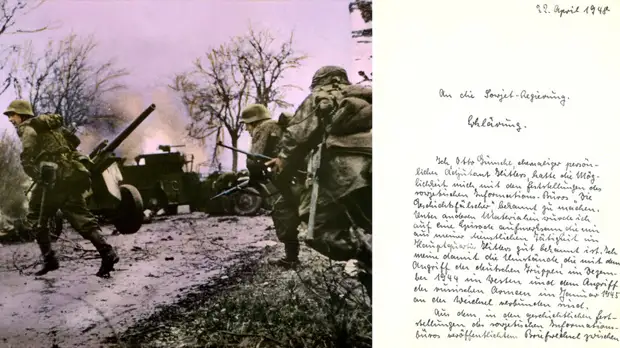 22. April 1948
An die Sowjet-Regierung.
Erklärung.
Ich, Otto Günsche, ehemaliger persön-
licher Adjutant Hitlers, hatte die Mög-
lichkeit mich mit den Feststellungen des
sowjetischen Informations-Büros „Die
Geschichtsfälscher“ bekannt zu machen.
Unter anderen Materialien wurde ich
auf eine Episode aufmerksam die mir
aus meiner dienstlichen Tätigkeit im
Hauptquartier Hitlers gut bekannt ist. Ich
mein damit die Umstände, die mit dem
Angriff der deutschen Truppen im Dezem-
ber 1944 im Westen und dem Angriff
der russischen Armeen im Januar 1945
an der Weichsel verbunden sind.
Aus dem, in den geschichtlichen Fest-
stellungen des sowjetischen Informations-
büros veröffentlichten Briefwechsel zwischen